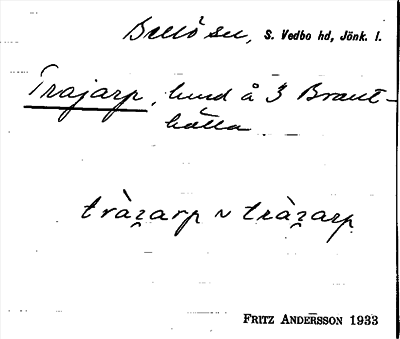 Bellö sn, S. Vedbo hd, Jönk. l.
Trajarp, lund å 3 Brant-
hälla
tràʒarp ~ tràʒarp
FRITZ ANDERSSON 1933